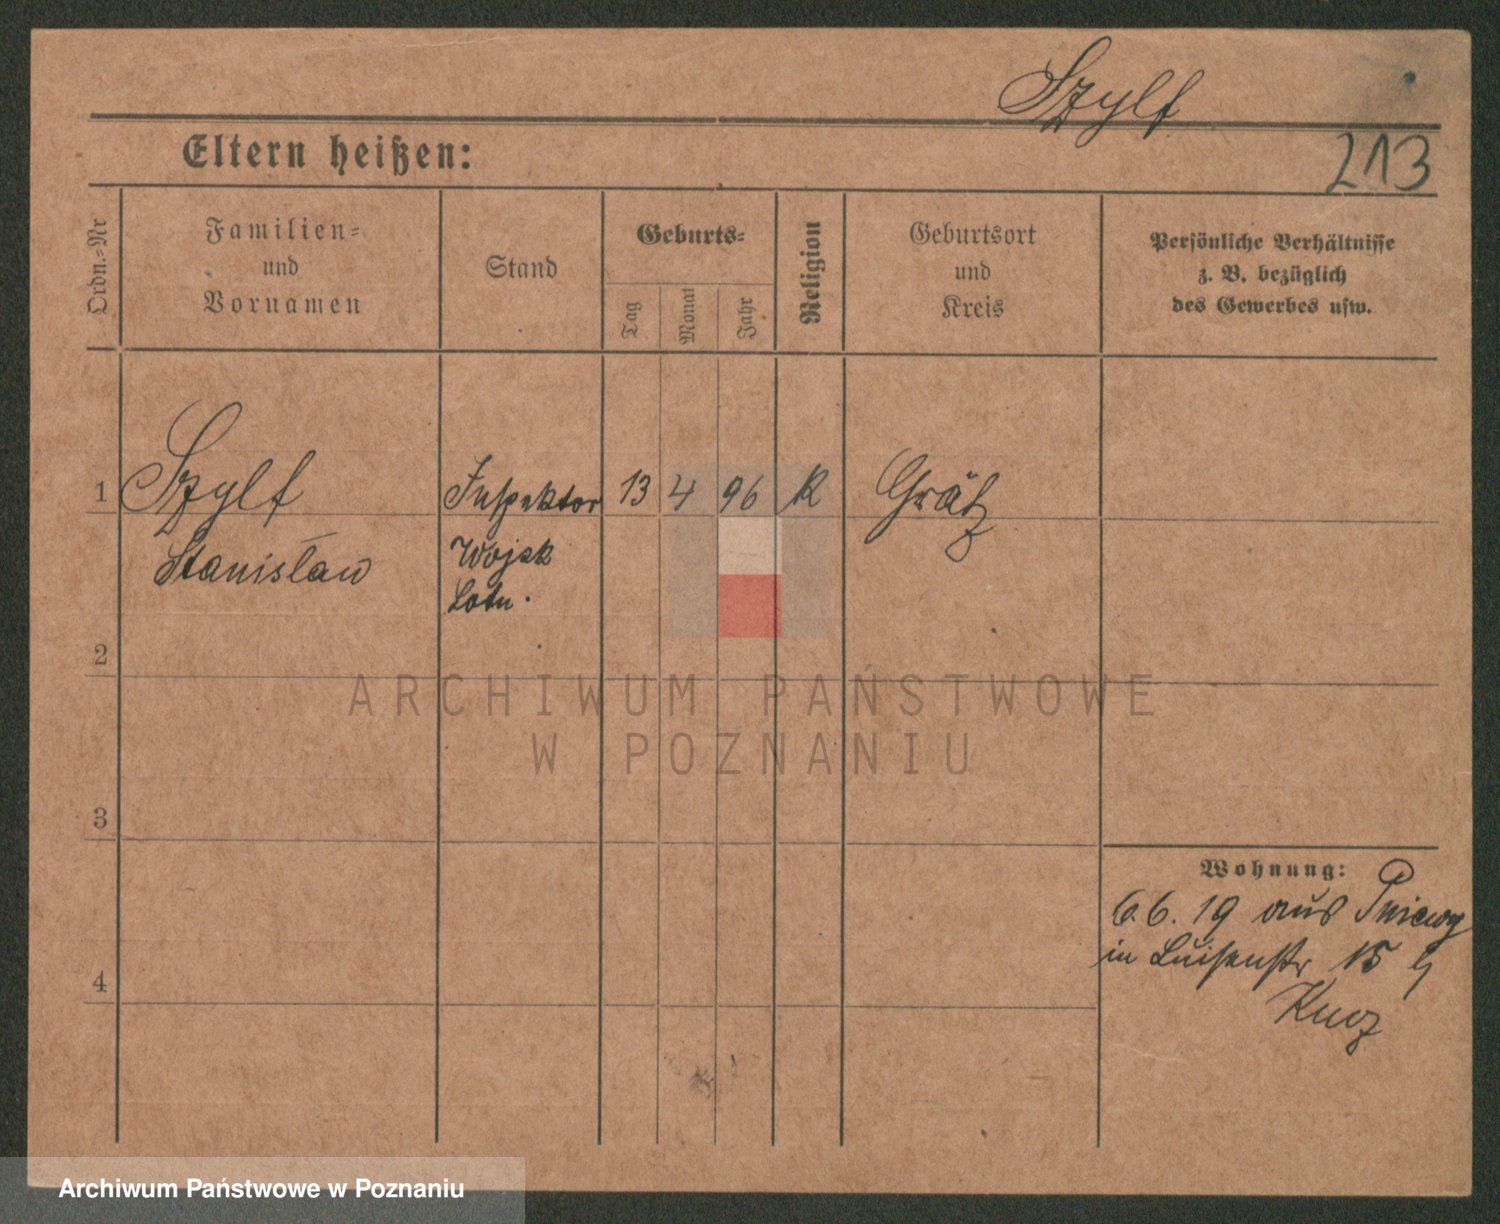 Szylf
213
Eltern heißen:
Ordn.-Nr
Familien-
und
Vornamen
Stand
Geburts-
Tag
Monat
Jahr
Religion
Geburtsort
und
Kreis
Persönliche Verhältnisse
z. B. bezüglich
des Gewerbes usw.
1 Szylf Inspektor 13 4 96 K Grätz
Stanisław
Wojsk
Lotn.
2
3
4
Wohnung:
6.6.19 aus Pniewy
in Luisenstr 15
ARCHIWUM PAŃSTWOWE
W POZNANIU
Archiwum Państwowe w Poznaniu